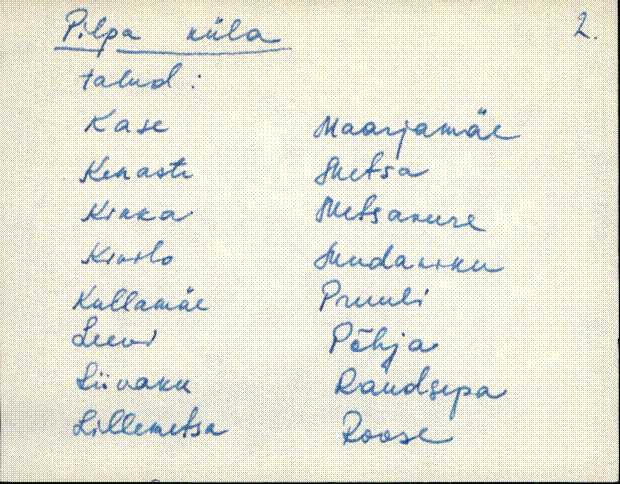 Pilpa küla
2.
talud:
Kase
Kinka
Kullamäe
Leevi
Liivaku
Lillemetsa
Maarjamäe
Metsa
Metsakure
Pruuli
Põhja
Raudsepa
Roose